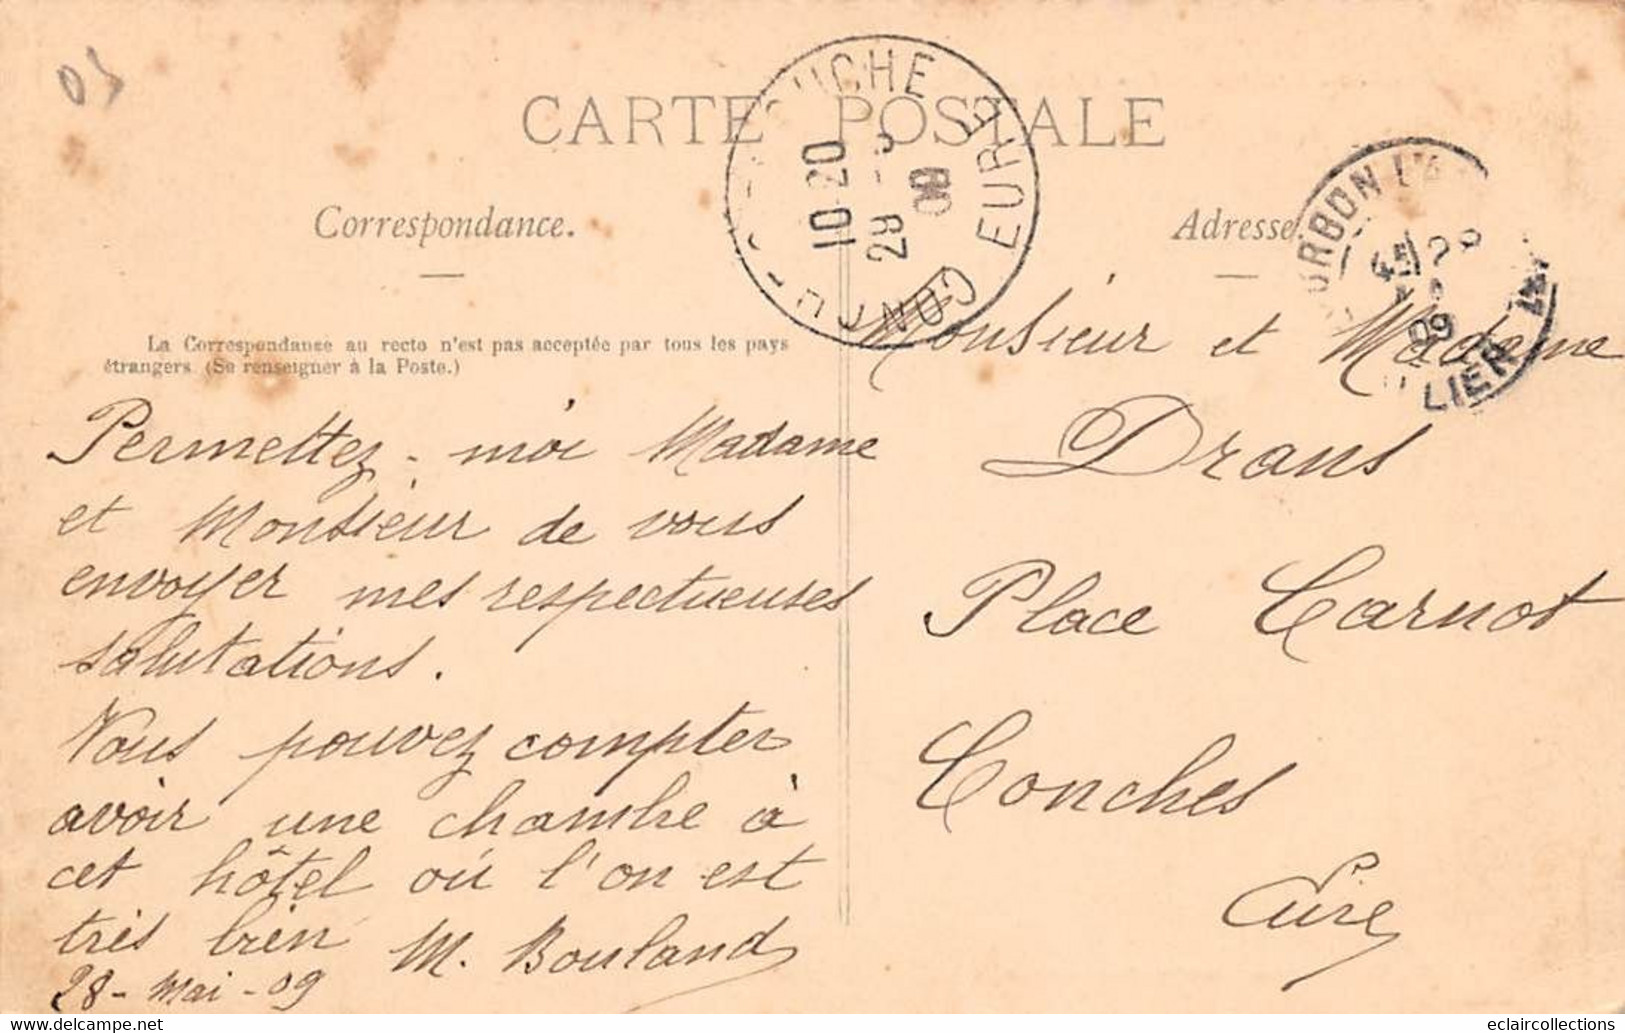 03
CARTE POSTALE
Correspondance.
Adresse
La Correspondanse au recto n'est pas acceptée par tous les pays
étrangers. (Se renseigner à la Poste.)
Permettez-moi Madame
et Monsieur de vous
envoyer mes respectueuses
salutations.
Vous pouvez compter
avoir une chambre à
cet hôtel où l'on est
très bien M. Bouland
28-Mai-09
Monsieur et Madame
Drans
Place Carnot
Conches
Eure
CONCHES
EURE
10 20
29 -5
09
BOURBON L'A
45
09
ALLIER
eclaircollections